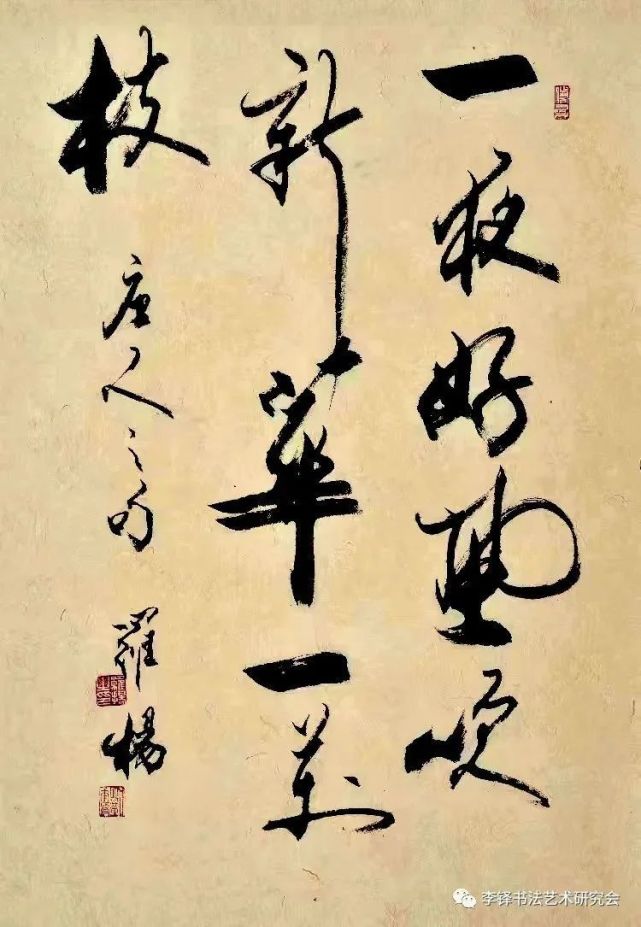 一夜好風吹
新華一萬
枝
唐人之句 羅楊
李铎书法艺术研究会